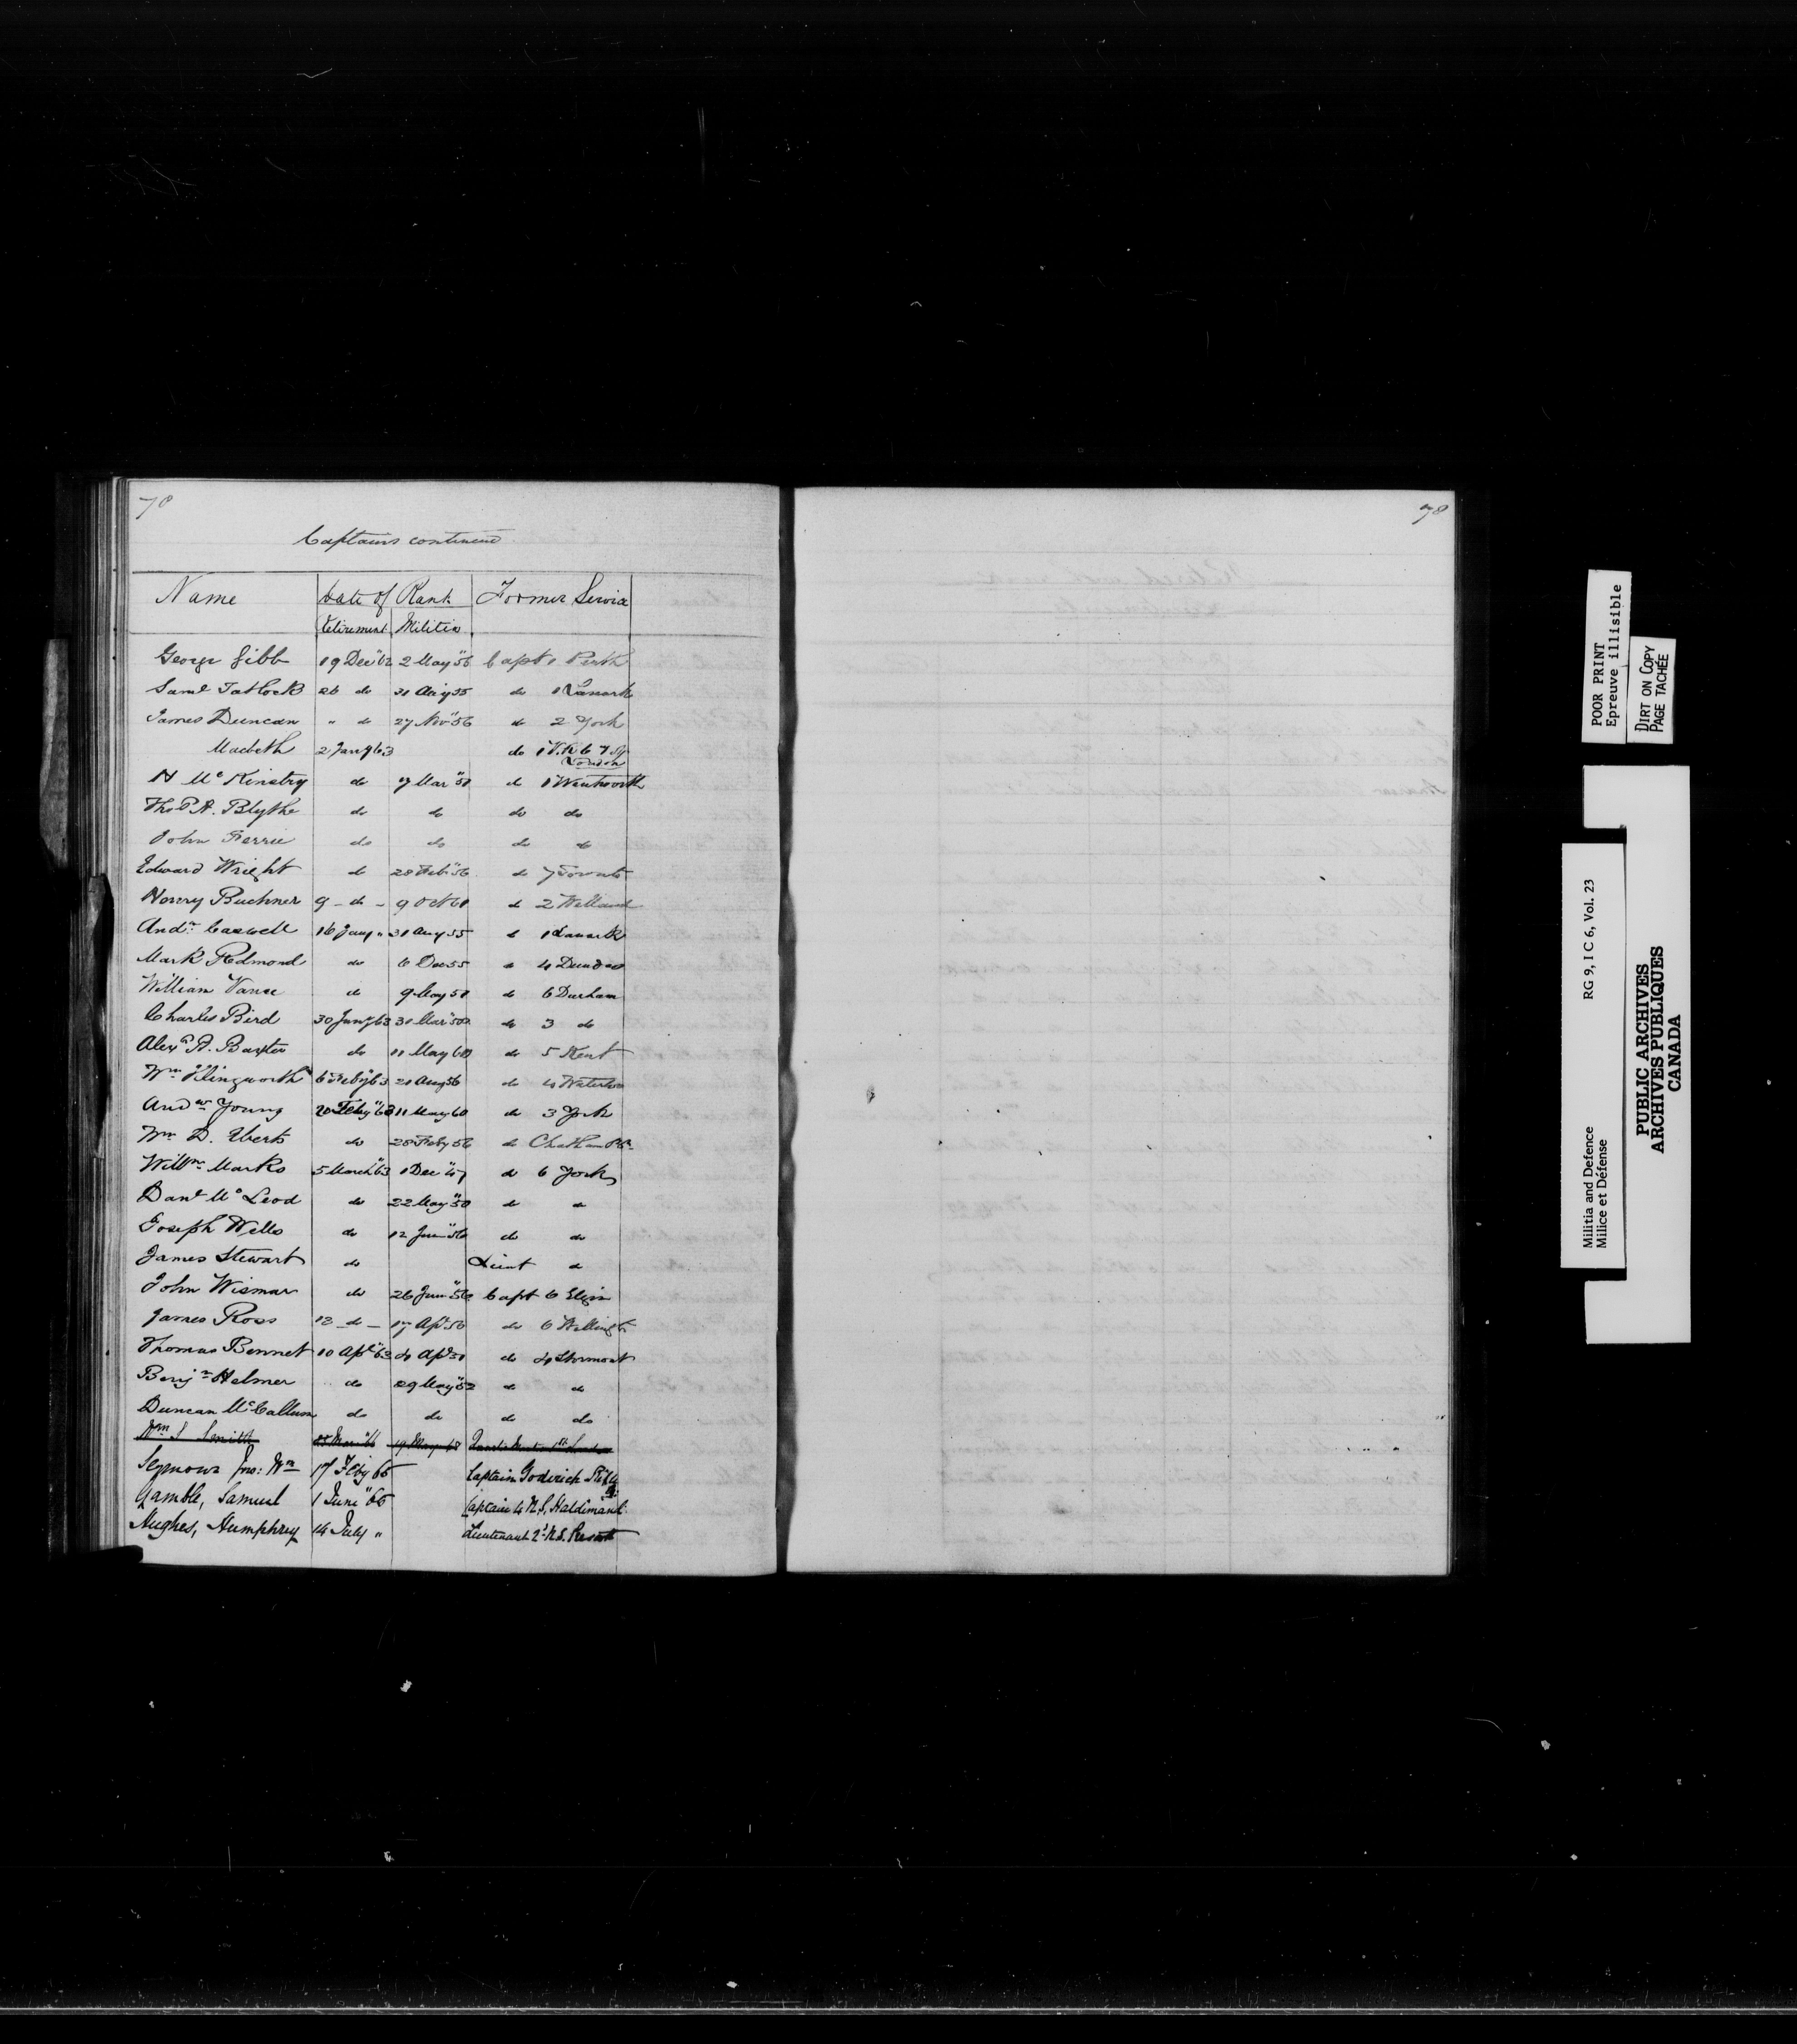 78
Captains continued
Name Date of Rank Former Service
Retirement Militia
George Gibb 19 Dec 62 2 May 56 Capt 1 Perth
Saml Tatlock 26 do 31 Aug 55 do 1 Lanark
James Duncan " do 27 Nov 56 do 2 York
Macbeth 2 Jany 63 do
London
N McKinstry do 7 Mar 51 do 1 Wentworth
Thos A. Blythe do do do do
John Ferrie do do do do
Edward Wright do 28 Feb 56 do 7 Toronto
Henry Buchner 9 - do - 9 Oct 61 do 2 Welland
Andw Caswell 16 Jany " 31 Aug 55 do 1 Lanark
Mark Redmond do 6 Dec 55 do 4 Dundas
William Vance do 9 May 51 do 6 Durham
Charles Bird 30 Jany 63 30 Mar 50 do 3 do
Alexr A. Baxter do 11 May 60 do 5 Kent
Wm Illingworth 6 Feby 63 21 Aug 56 do 4 Waterloo
Andw Young 20 Feby 63 11 May 60 do 3 York
Wm D. Eberts do 28 Feby 56 do Chatham
Willm Marks 5 March 63 1 Dec 47 do 6 York
Danl McLeod do 22 May 50 do do
Joseph Wells do 12 June 56 do do
James Stewart do Lieut do
John Wismar do 26 June 56 Capt 6 Elgin
James Ross 12 - do - 17 Apl 56 do 6 Wellingtn
Thomas Bennet 10 Apl 63 4 Apl 51 do 4 Stormont
Benjn Helmer do 29 May 52 do do
Duncan McCallum do do do do
Wm S Smith
Seymour Jno: Wm 17 Feby 65 Captain Goderich
Gamble, Samuel 1 June 66 Captain 4 N.S. Haldimand
Hughes, Humphrey 14 July " Lieutenant 2d N.S.
78
POOR PRINT
Epreuve illisible
DIRT ON COPY
PAGE TACHÉE
Militia and Defence RG 9, I C 6, Vol. 23
Milice et Défense
PUBLIC ARCHIVES
ARCHIVES PUBLIQUES
CANADA